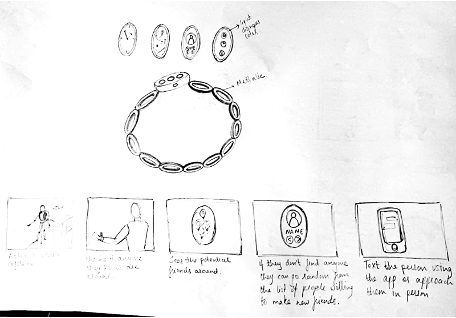 Light
changes
color
Metallic
they know are
Sees the potential
friends around.
If they don't find anyone
they can so random from
the list of people willing
to make new friends.
NAME
Text the person using
the app or approach
them in person